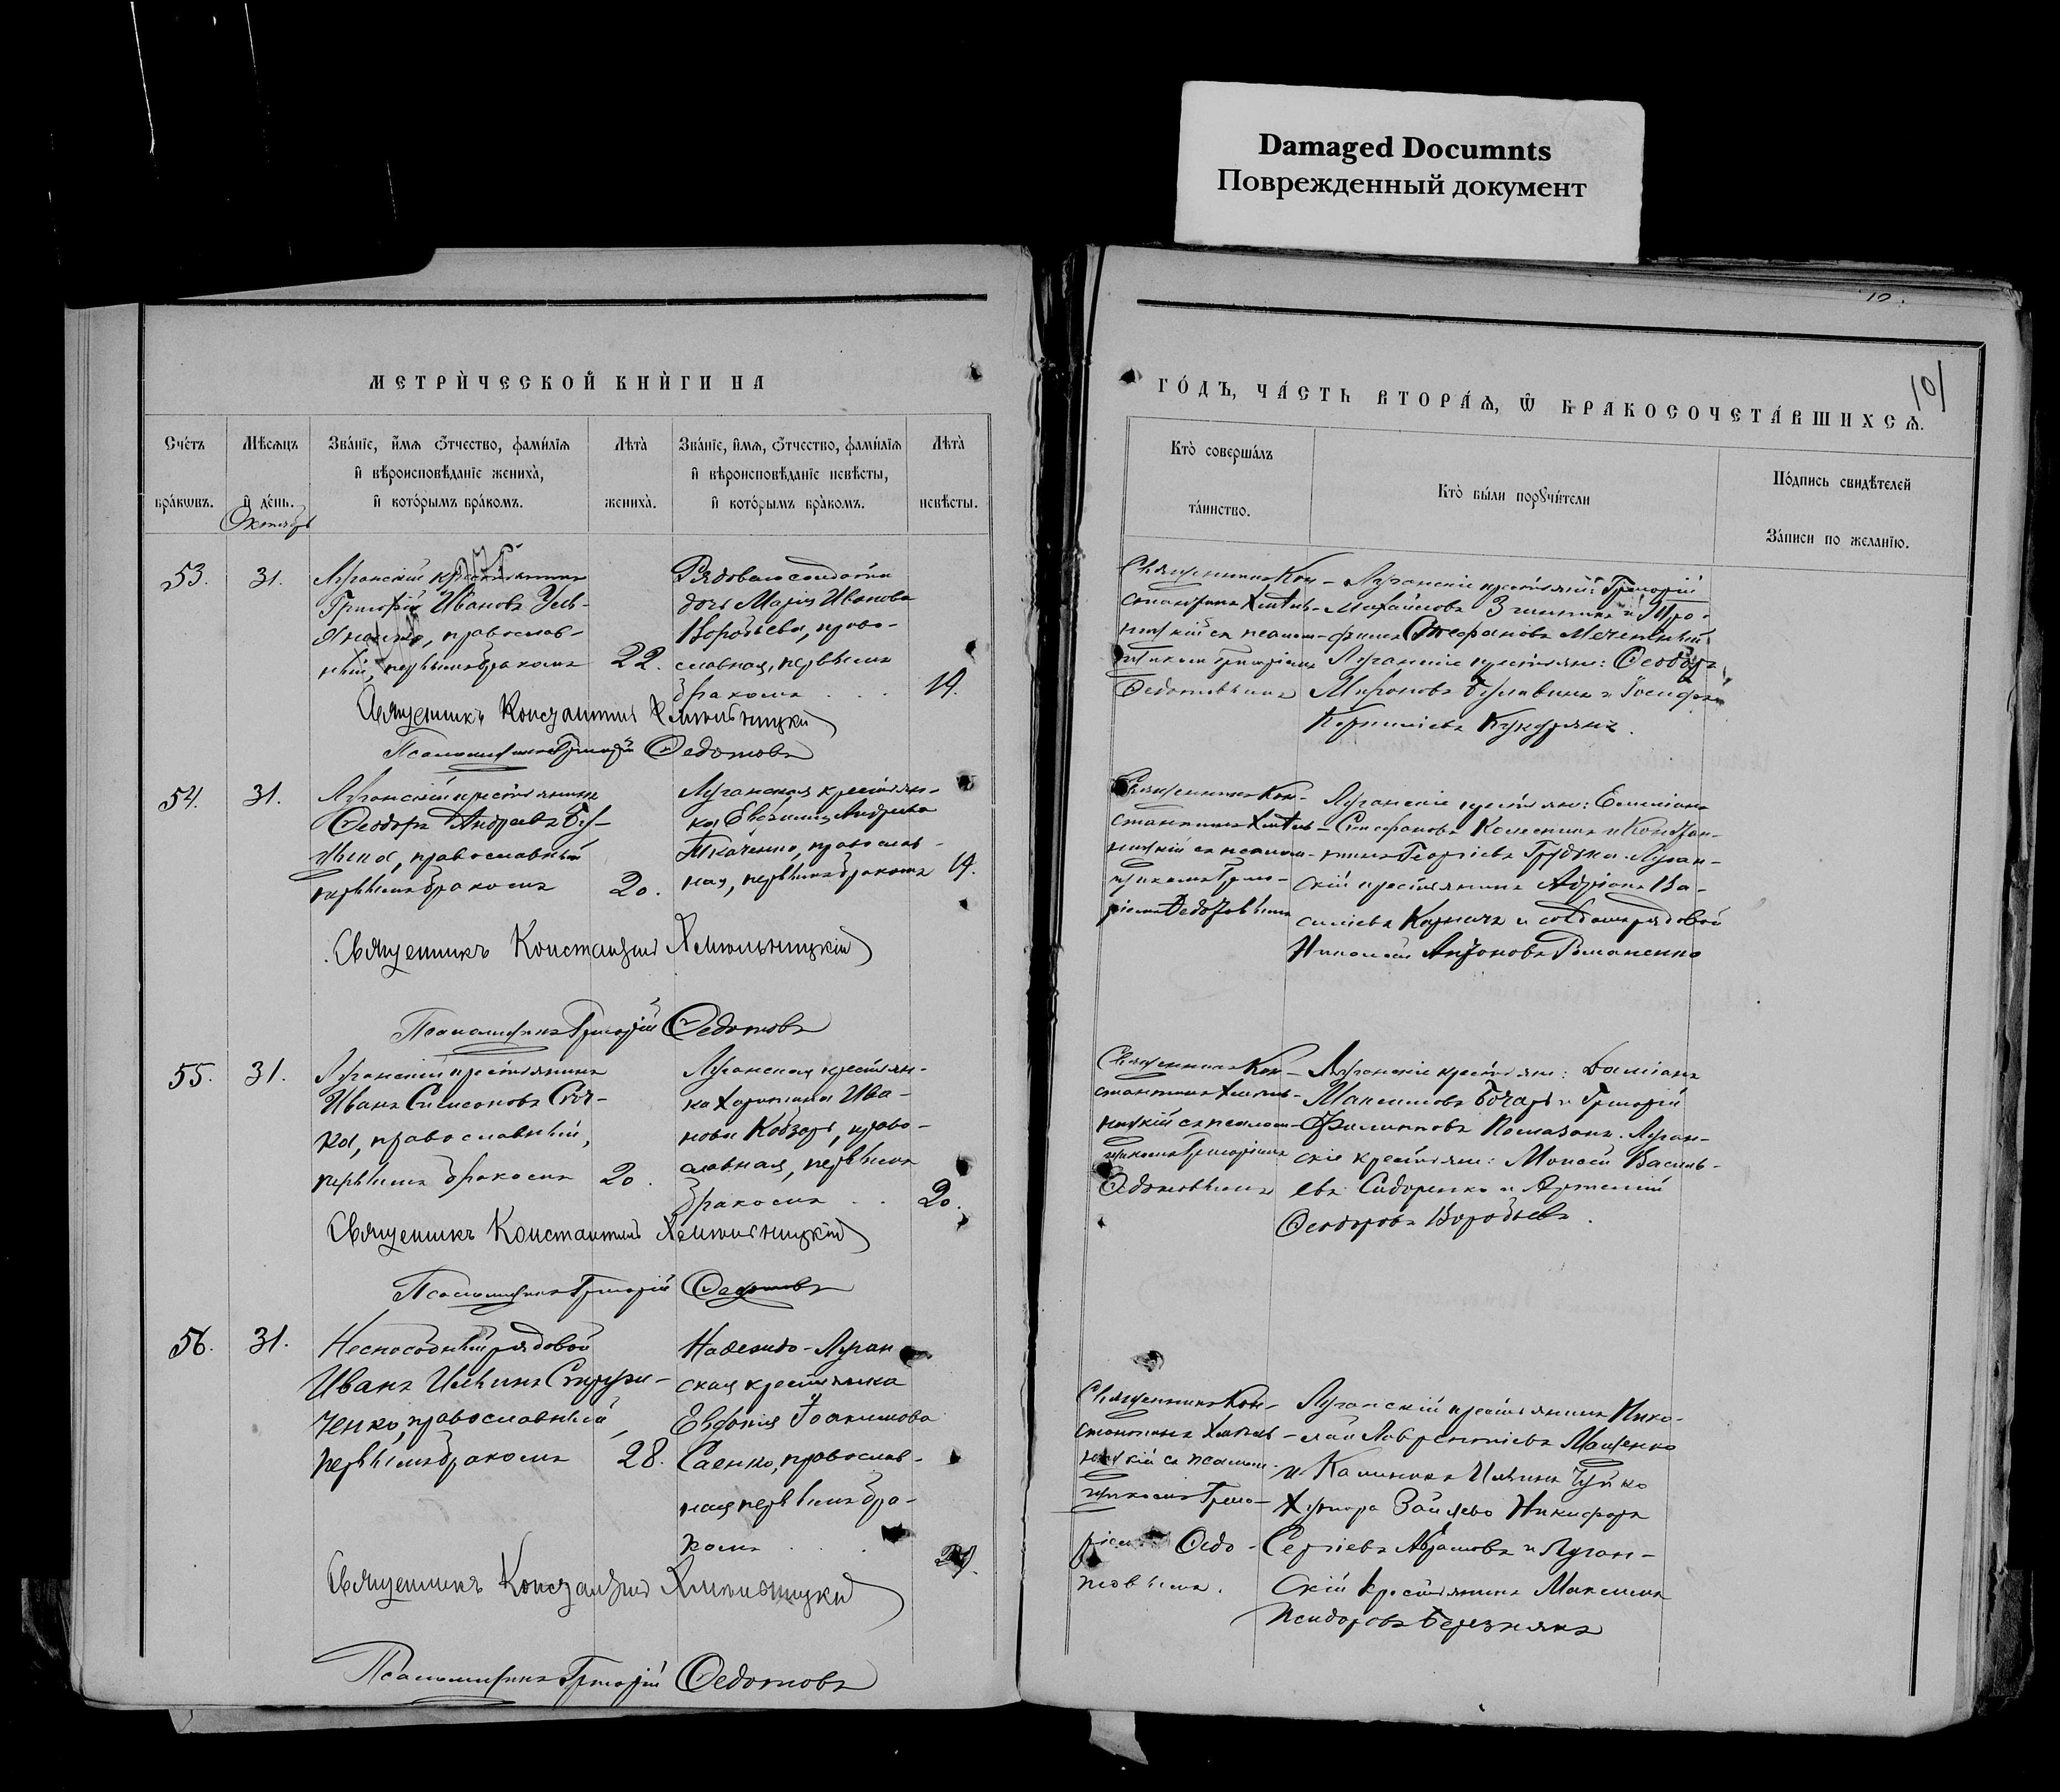 Damaged Documnts
Поврежденный документ
МЕТРИ́ЧЕСКОЙ КНИ́ГИ НА
Сче́тъ
бра́кѡвъ.
Мѣ́сѧцъ
и҆ де́нь.
Октябрь
Зва́нїе, и҆́мѧ ѻ҆́тчество, фами́лїѧ
и҆ вѣроисповѣ́данїе жениха̀,
и҆ кото́рымъ бра́комъ.
Лѣта̀
жениха̀.
Зва́нїе, и҆́мѧ, ѻ҆́тчество, фами́лїѧ
и҆ вѣроисповѣ́данїе невѣ́сты,
и҆ кото́рымъ бра́комъ.
Лѣта̀
невѣ́сты.
53.
31.
Луганскій крестьянинъ
Григорій Ивановъ
православ-
ный, первымъ бракомъ
22.
Рядового солдата
дочь Марія Иванова
Воробьева, право-
славная, первымъ
бракомъ
19.
Священникъ Константинъ Хмельницкій
Псаломщикъ Григорій Ѳедотовъ
54.
31.
Луганскій крестьянинъ
Ѳеодоръ Андреевъ
православный
первымъ бракомъ
20.
Луганская крестьян-
ка Евфимія Андреева
Ткаченко, православ-
ная, первымъ бракомъ
19.
Священникъ Константинъ Хмельницкій
Псаломщикъ Григорій Ѳедотовъ
55.
31.
Луганскій крестьянинъ
Иванъ Симеоновъ
православный,
первымъ бракомъ
20.
Луганская крестьян-
ка Харитина Ива-
нова Кобзарь, право-
славная, первымъ
бракомъ
20.
Священникъ Константинъ Хмельницкій
Псаломщикъ Григорій Ѳедотовъ
56.
31.
Неспособный рядовой
Иванъ Ильинъ
православный,
первымъ бракомъ
28.
Надеждо-Луган
ская крестьянка
Евфимія Іоакимова
Саенко, православ-
ная первымъ бра-
комъ
Священникъ Константинъ Хмельницкій
Псаломщикъ Григорій Ѳедотовъ
101
ГО́ДЪ, ЧА́СТЬ ВТОРА́Ѧ, Ѡ҆ БРАКОСОЧЕТА́ВШИХСѦ.
Кто̀ соверша́лъ
та́инство.
Кто̀ бы́ли порꙋчи́тели
По́дпись свидѣ́телей
За́писи по жела́нїю.
Священникъ Кон-
стантинъ Хмель-
ницкій съ псалом-
щикомъ Григоріемъ
Ѳедотовымъ
Луганскіе крестьяне: Григорій
Михайловъ и Тро-
фимъ Стефановъ
Луганскіе крестьяне: Ѳеодоръ
Мироновъ и Іосифъ
Корниліевъ
Священникъ Кон-
стантинъ Хмель-
ницкій съ псалом-
щикомъ Григо-
ріемъ Ѳедотовымъ
Луганскіе крестьяне: Емиліанъ
Стефановъ Колесникъ и Кондра-
Георгіевъ Луган-
скій крестьянинъ Адріанъ Ва-
силіевъ и рядовой
Николай Антоновъ Романенко
Священникъ Кон-
стантинъ Хмель-
ницкій съ псалом-
щикомъ Григоріемъ
Ѳедотовымъ
Луганскіе крестьяне: Даміанъ
Максимовъ Бочаръ и Григорій
Филипповъ Помазанъ. Луган-
скіе крестьяне: Моисей Василь-
евъ Сидоренко и Артемій
Ѳеодоровъ Воробьевъ.
Священникъ Кон-
стантинъ Хмель-
ницкій съ псалом-
щикомъ Григо-
Ѳедо-
товымъ.
Луганскій крестьянинъ Нико-
лай Лаврентіевъ Мащенко
и Калиникъ Ильинъ Чуйко
хутора Никифоръ
Сергіевъ Абрамовъ и Луган-
скій крестьянинъ Максимъ
Исидоровъ Березнякъ